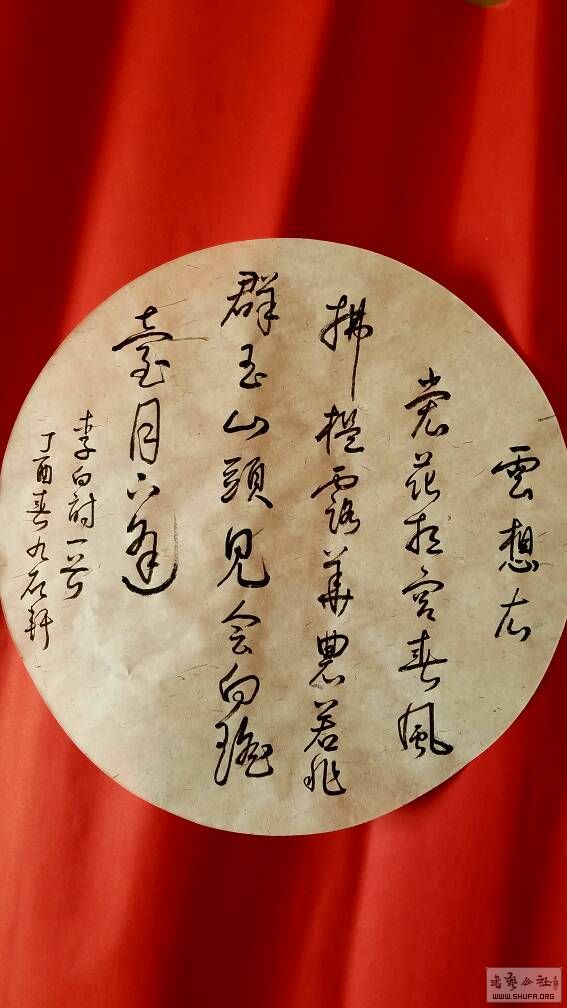 雲想衣
裳花想容春風
拂檻露華農若非
群玉山頭見会向瑤
臺月下逢
李白詩一首
丁酉春九石軒
書藝公社
WWW.SHUFA.ORG